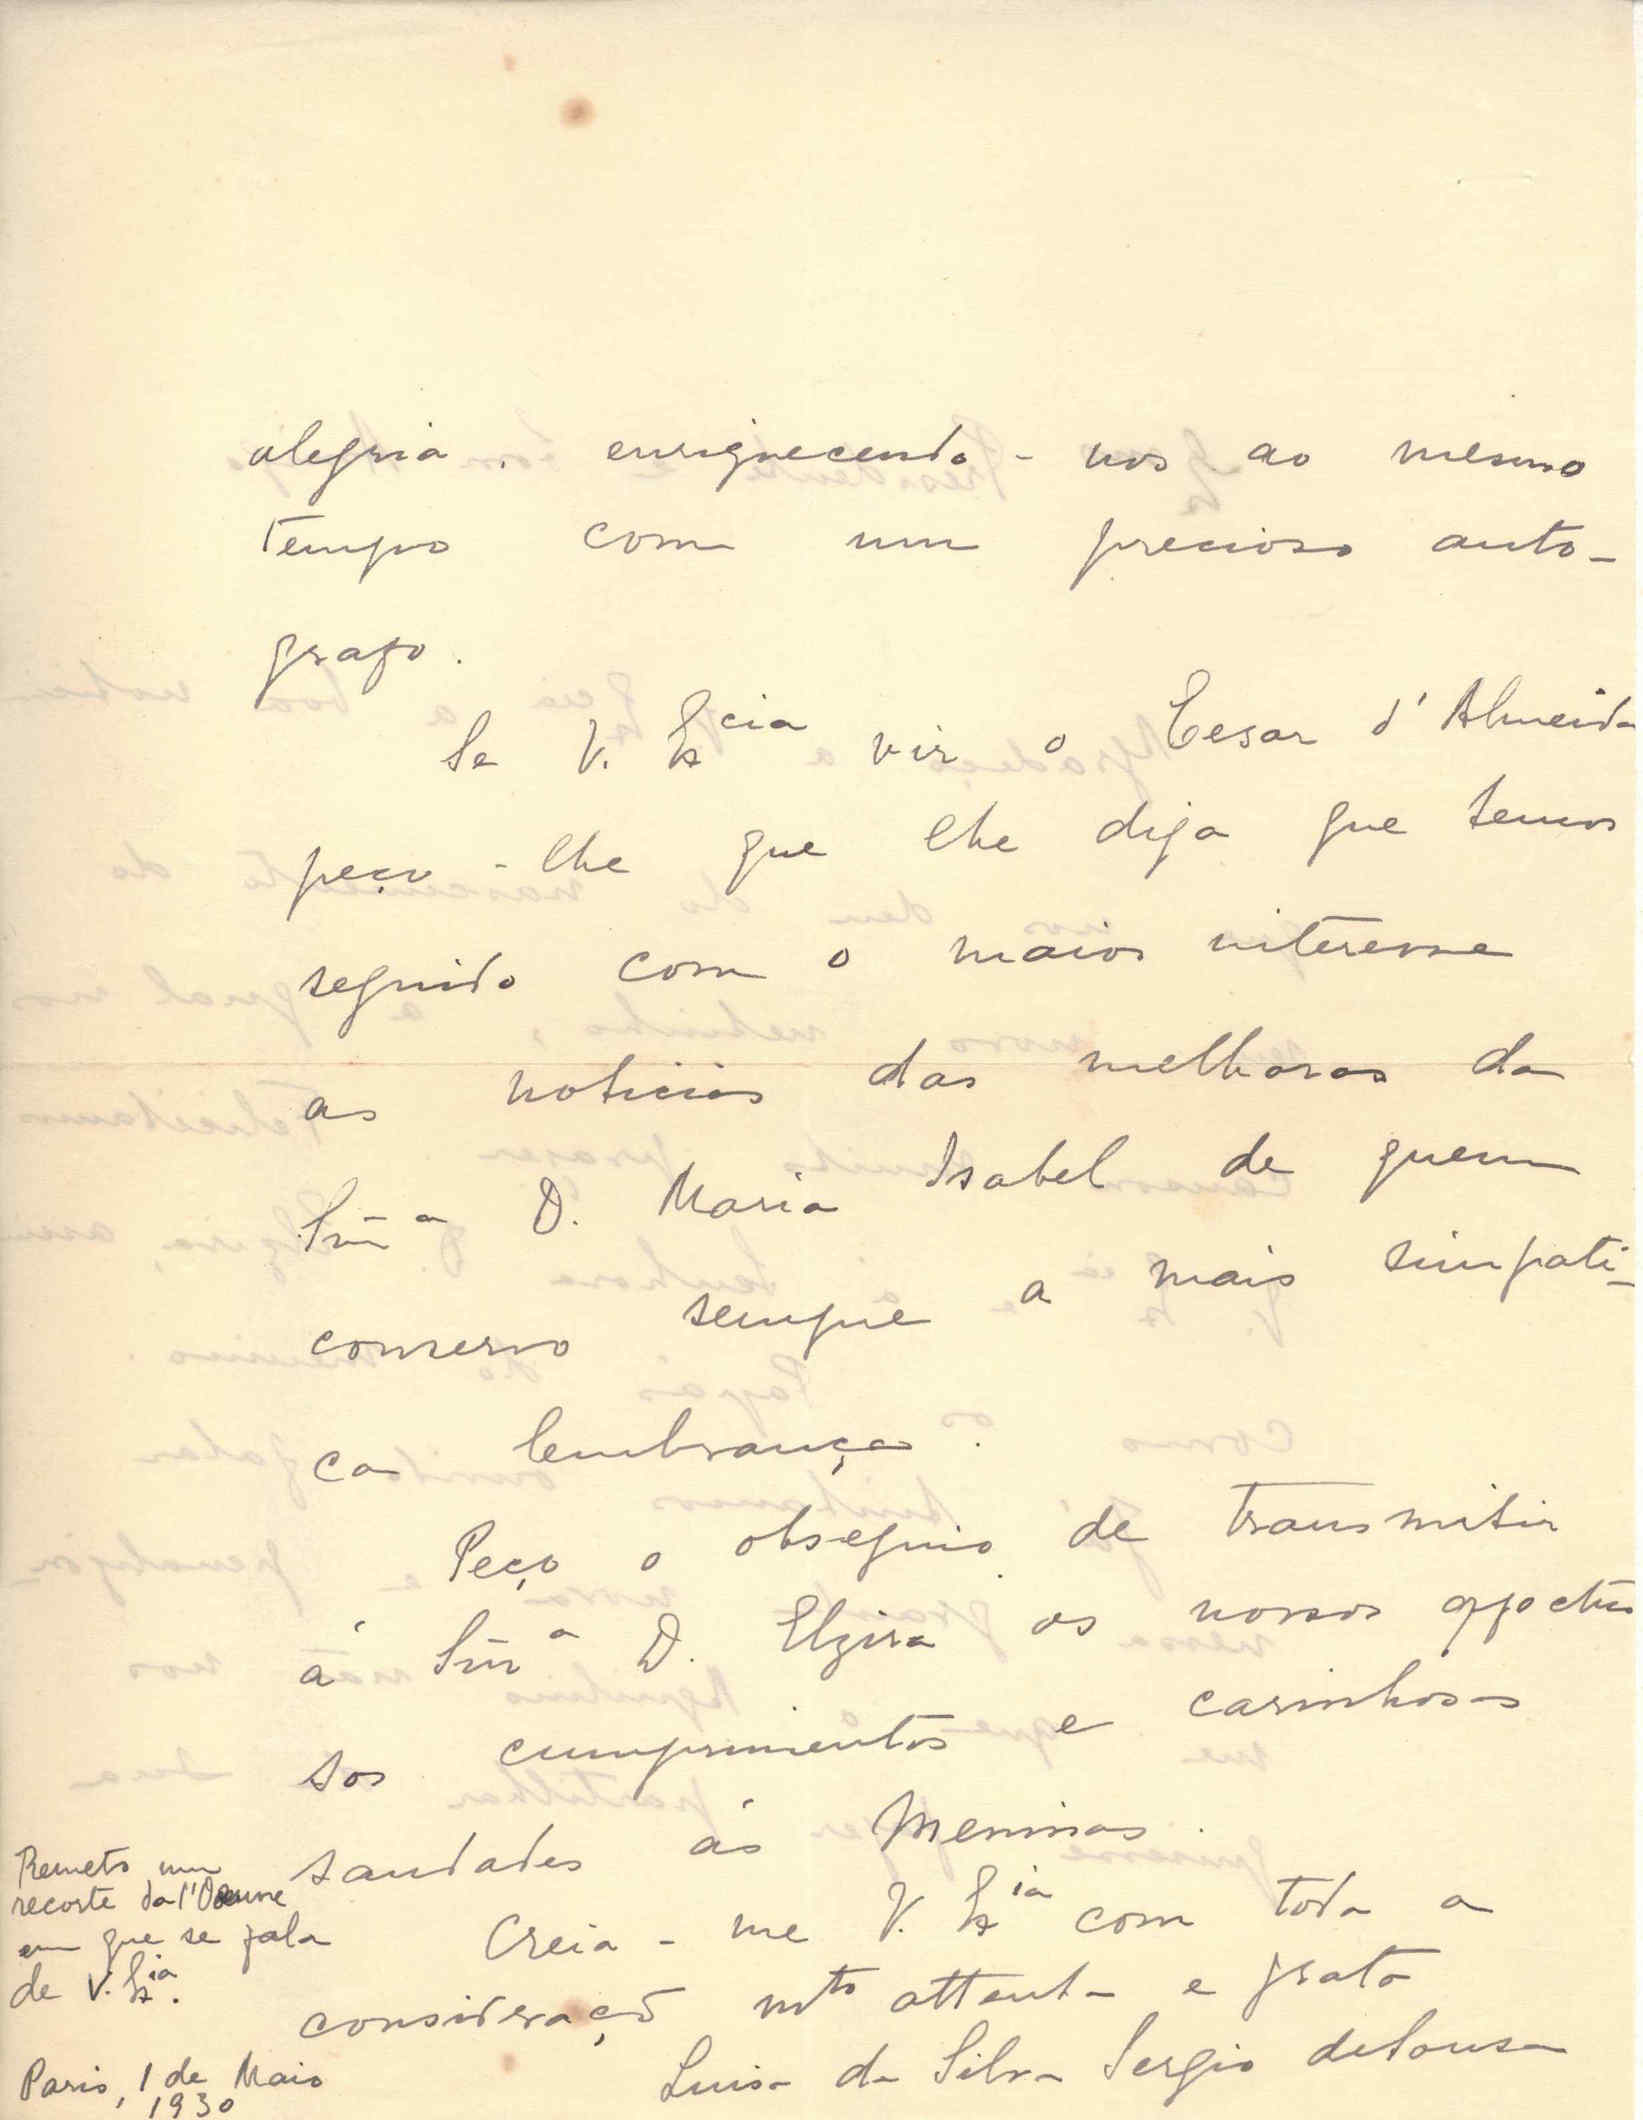 alegria. enriquecendo-nos ao mesmo
tempo com um precioso auto-
grafo.
Se V. Excia vir o Cesar d'Almeida
peço-lhe que lhe diga que temos
seguido com o maior interesse
as noticias das melhoras da
Snr̃a D. Maria Isabel de quem
conservo sempre a mais simpati-
ca lembrança.
Peço o obsequio de transmitir
á Snr̃a D. Elzira os nossos affectuo
sos cumprimentos e carinhosas
saudades ás Meninas.
Creia-me V. Exia com toda a
consideração mto attenta e grata
Luisa da Silva Sergio de Sousa
Remeto um
recorte da l'Oeuvre
em que se fala
de V. Exia.
Paris, 1 de Maio
1930